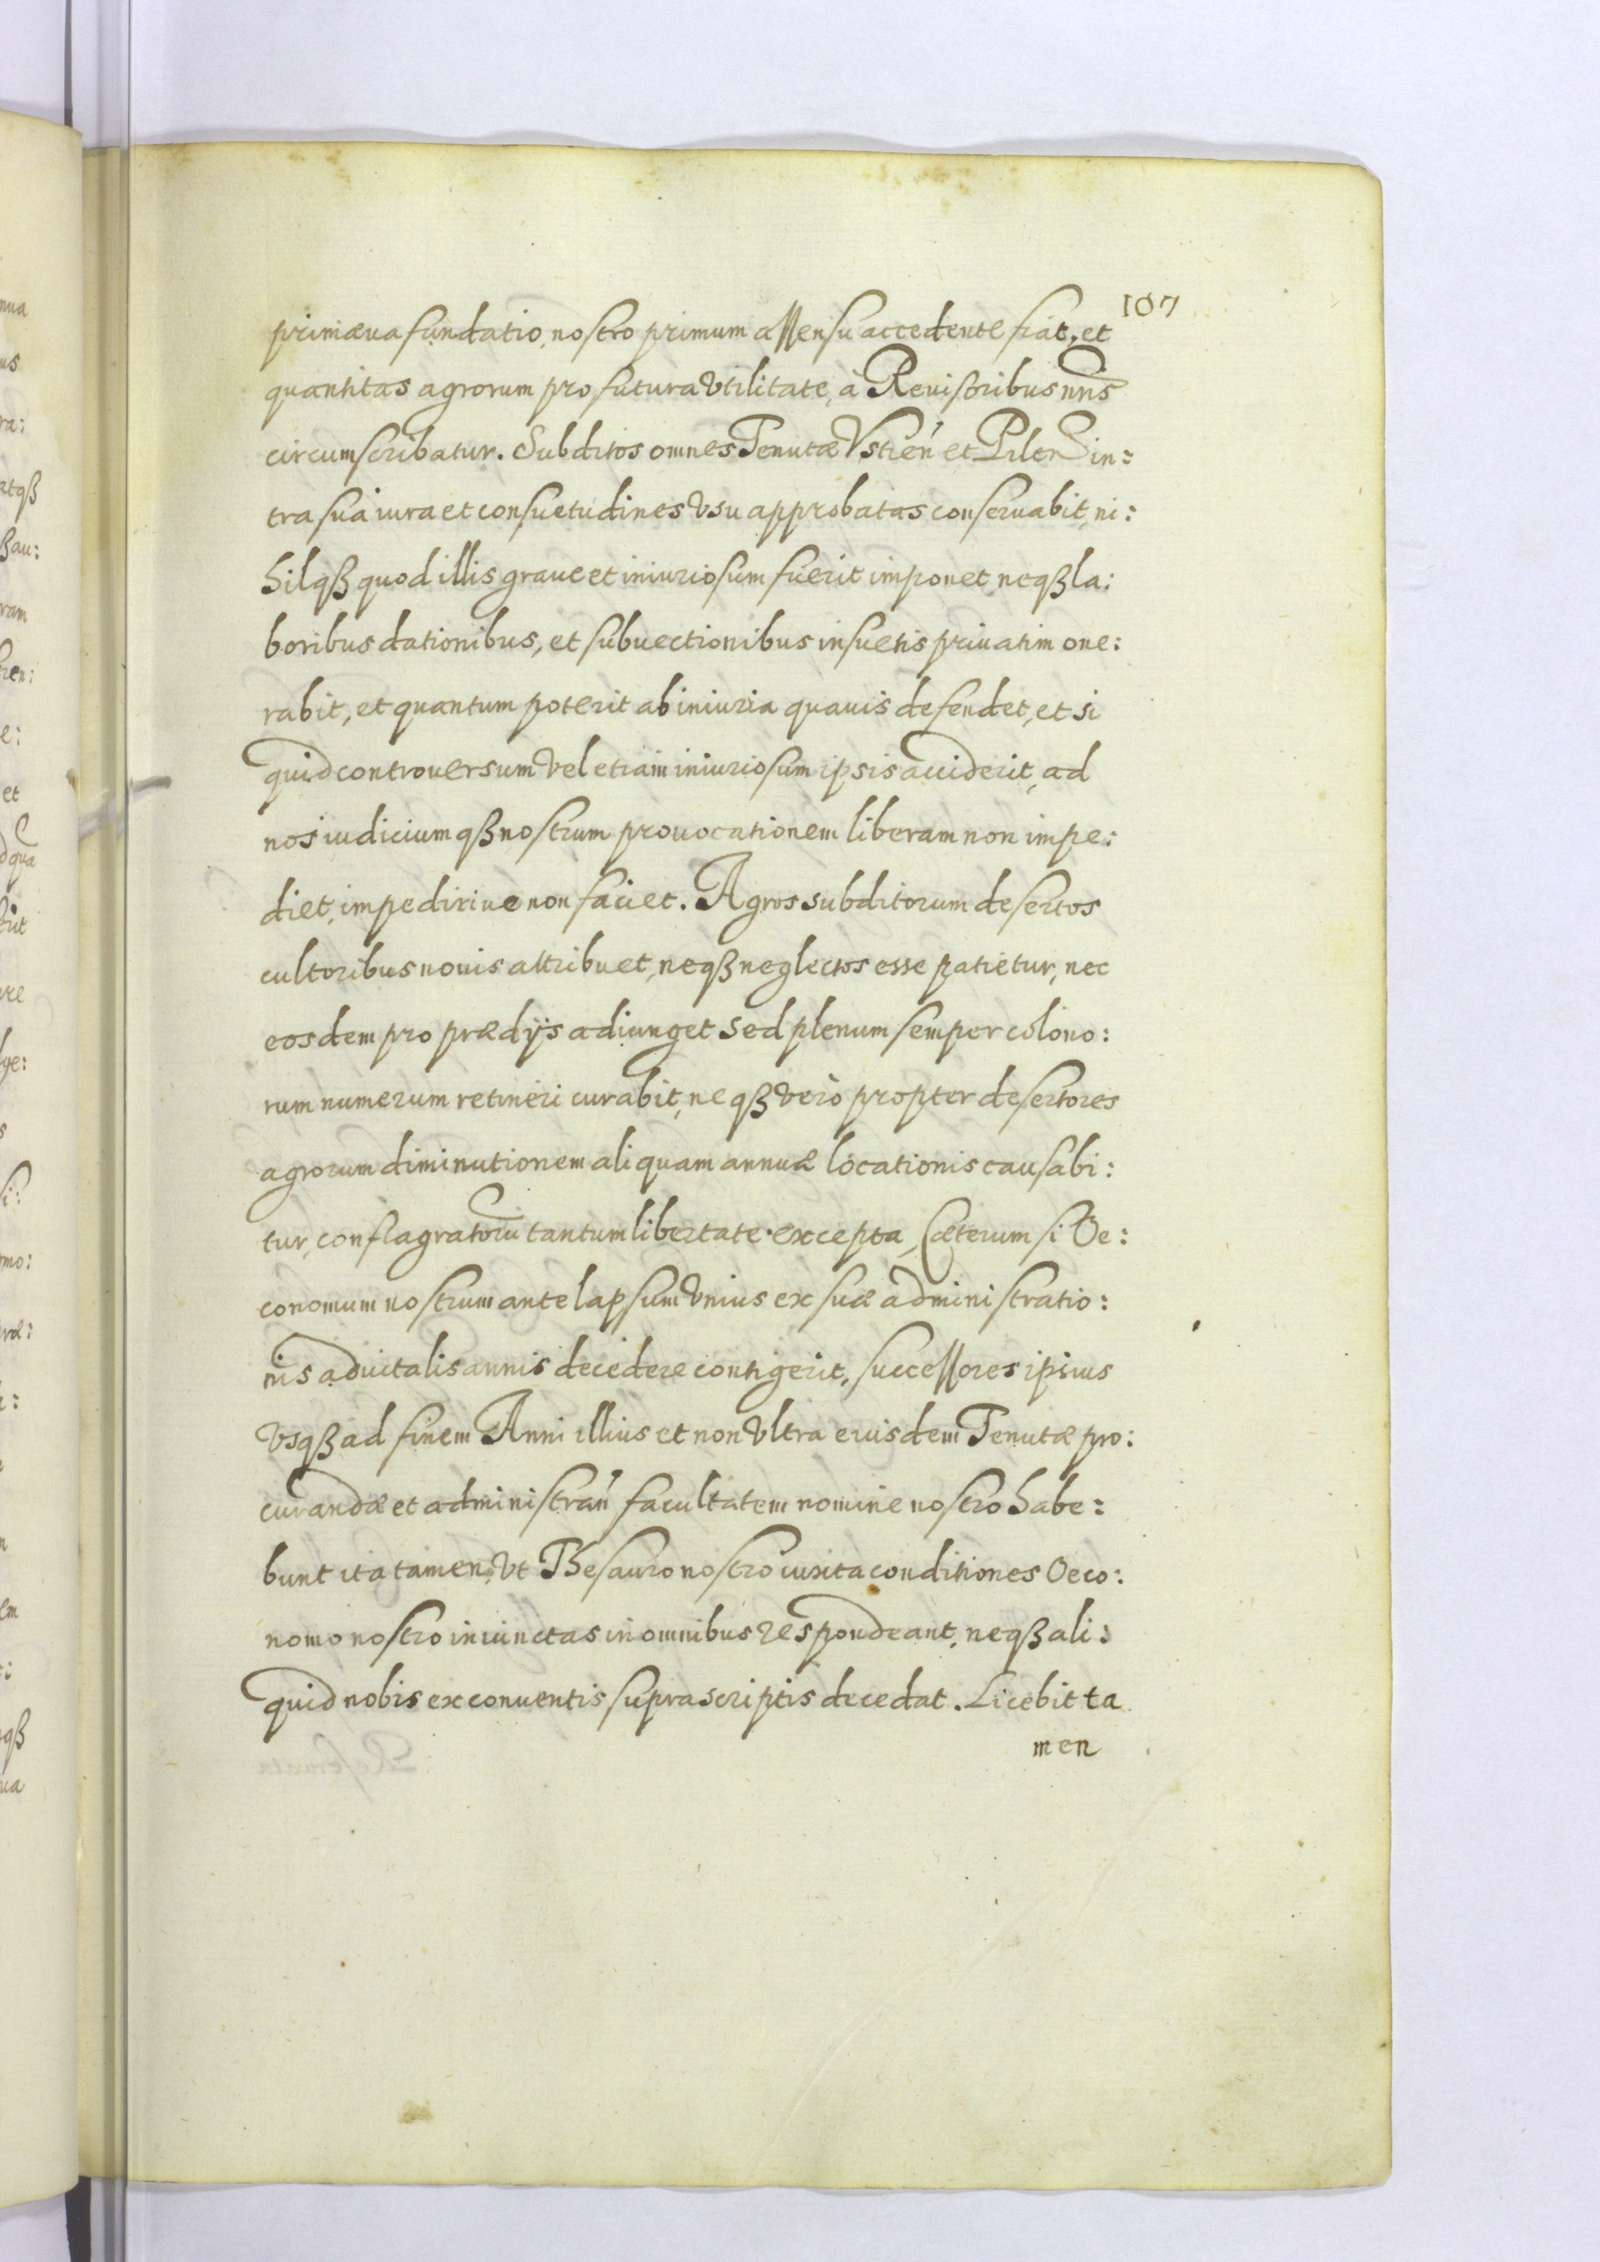 107
primæua fundatio, nostro primum assensu accedente fiat, et
quantitas agrorum pro futura vtilitate, à Reuisoribus nr̃is
circumscribatur. Subditos omnes Tenutæ Vstień et Pilen̄ in:
tra sua iura et consuetudines vsu approbatas conseruabit, ni:
hilqß quod illis graue et iniuriosum fuerit imponet, neqß la:
boribus dationibus, et subuectionibus insuetis priuatim one:
rabit, et quantum poterit ab iniuria quauis defendet, et si
quid controuersum vel etiam iniuriosum ipsis acciderit, ad
nos iudiciumqß nostrum prouocationem liberam non impe:
diet, impediriue non faciet. Agros subditorum desertos
cultoribus nouis attribuet, neqß neglectos esse patietur, nec
eosdem pro prædijs adiunget sed plenum semper colono:
rum numerum retineri curabit, neqß verò propter desertores
agrorum diminutionem aliquam annuæ locationis causabi:
tur, conflagratorũ tantum libertate excepta, Cæterum si Oe:
conomum nostrum ante lapsum vnius ex suæ administratio:
nis aduitalis annis decedere contigerit, successores ipsius
vsqß ad finem Anni illius et non vltra eiusdem Tenutæ pro:
curandæ et administrań facultatem nomine nostro habe:
bunt ita tamen, vt Thesauro nostro iuxta conditiones Oeco:
nomo nostro iniunctas in omnibus respondeant, neqß ali:
quid nobis ex conuentis suprascriptis decedat. Licebit ta
men